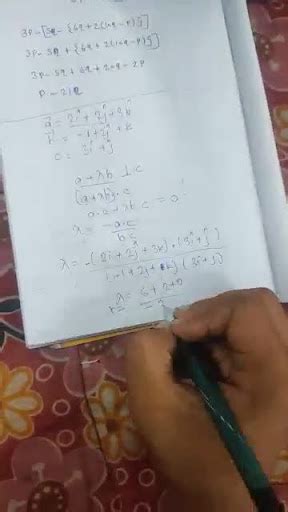 3P-[5q-{6q+2(10q-P)}]
3P-5q+{6q+2(10q-P)}
3P-5q+6q+20q-2P
P-21q
a = 2i + 2j + 3k
b = -i + 2j + k
c = 3i + j
a + λb ⊥ c
(a + λb) . c
a . c + λ b . c = 0
λ = -a.c / b.c
λ = -(2i + 2j + 3k) . (3i + j)
(3i + j)
λ = 6 + 2 + 0